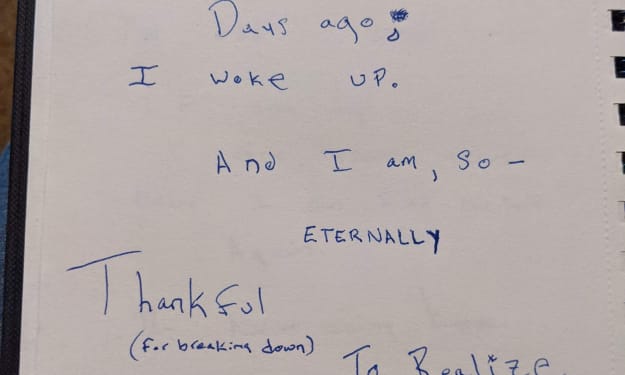 Days ago;
I woke up.
And I am, so -
ETERNALLY
Thankful
(for breaking down)
To Realize